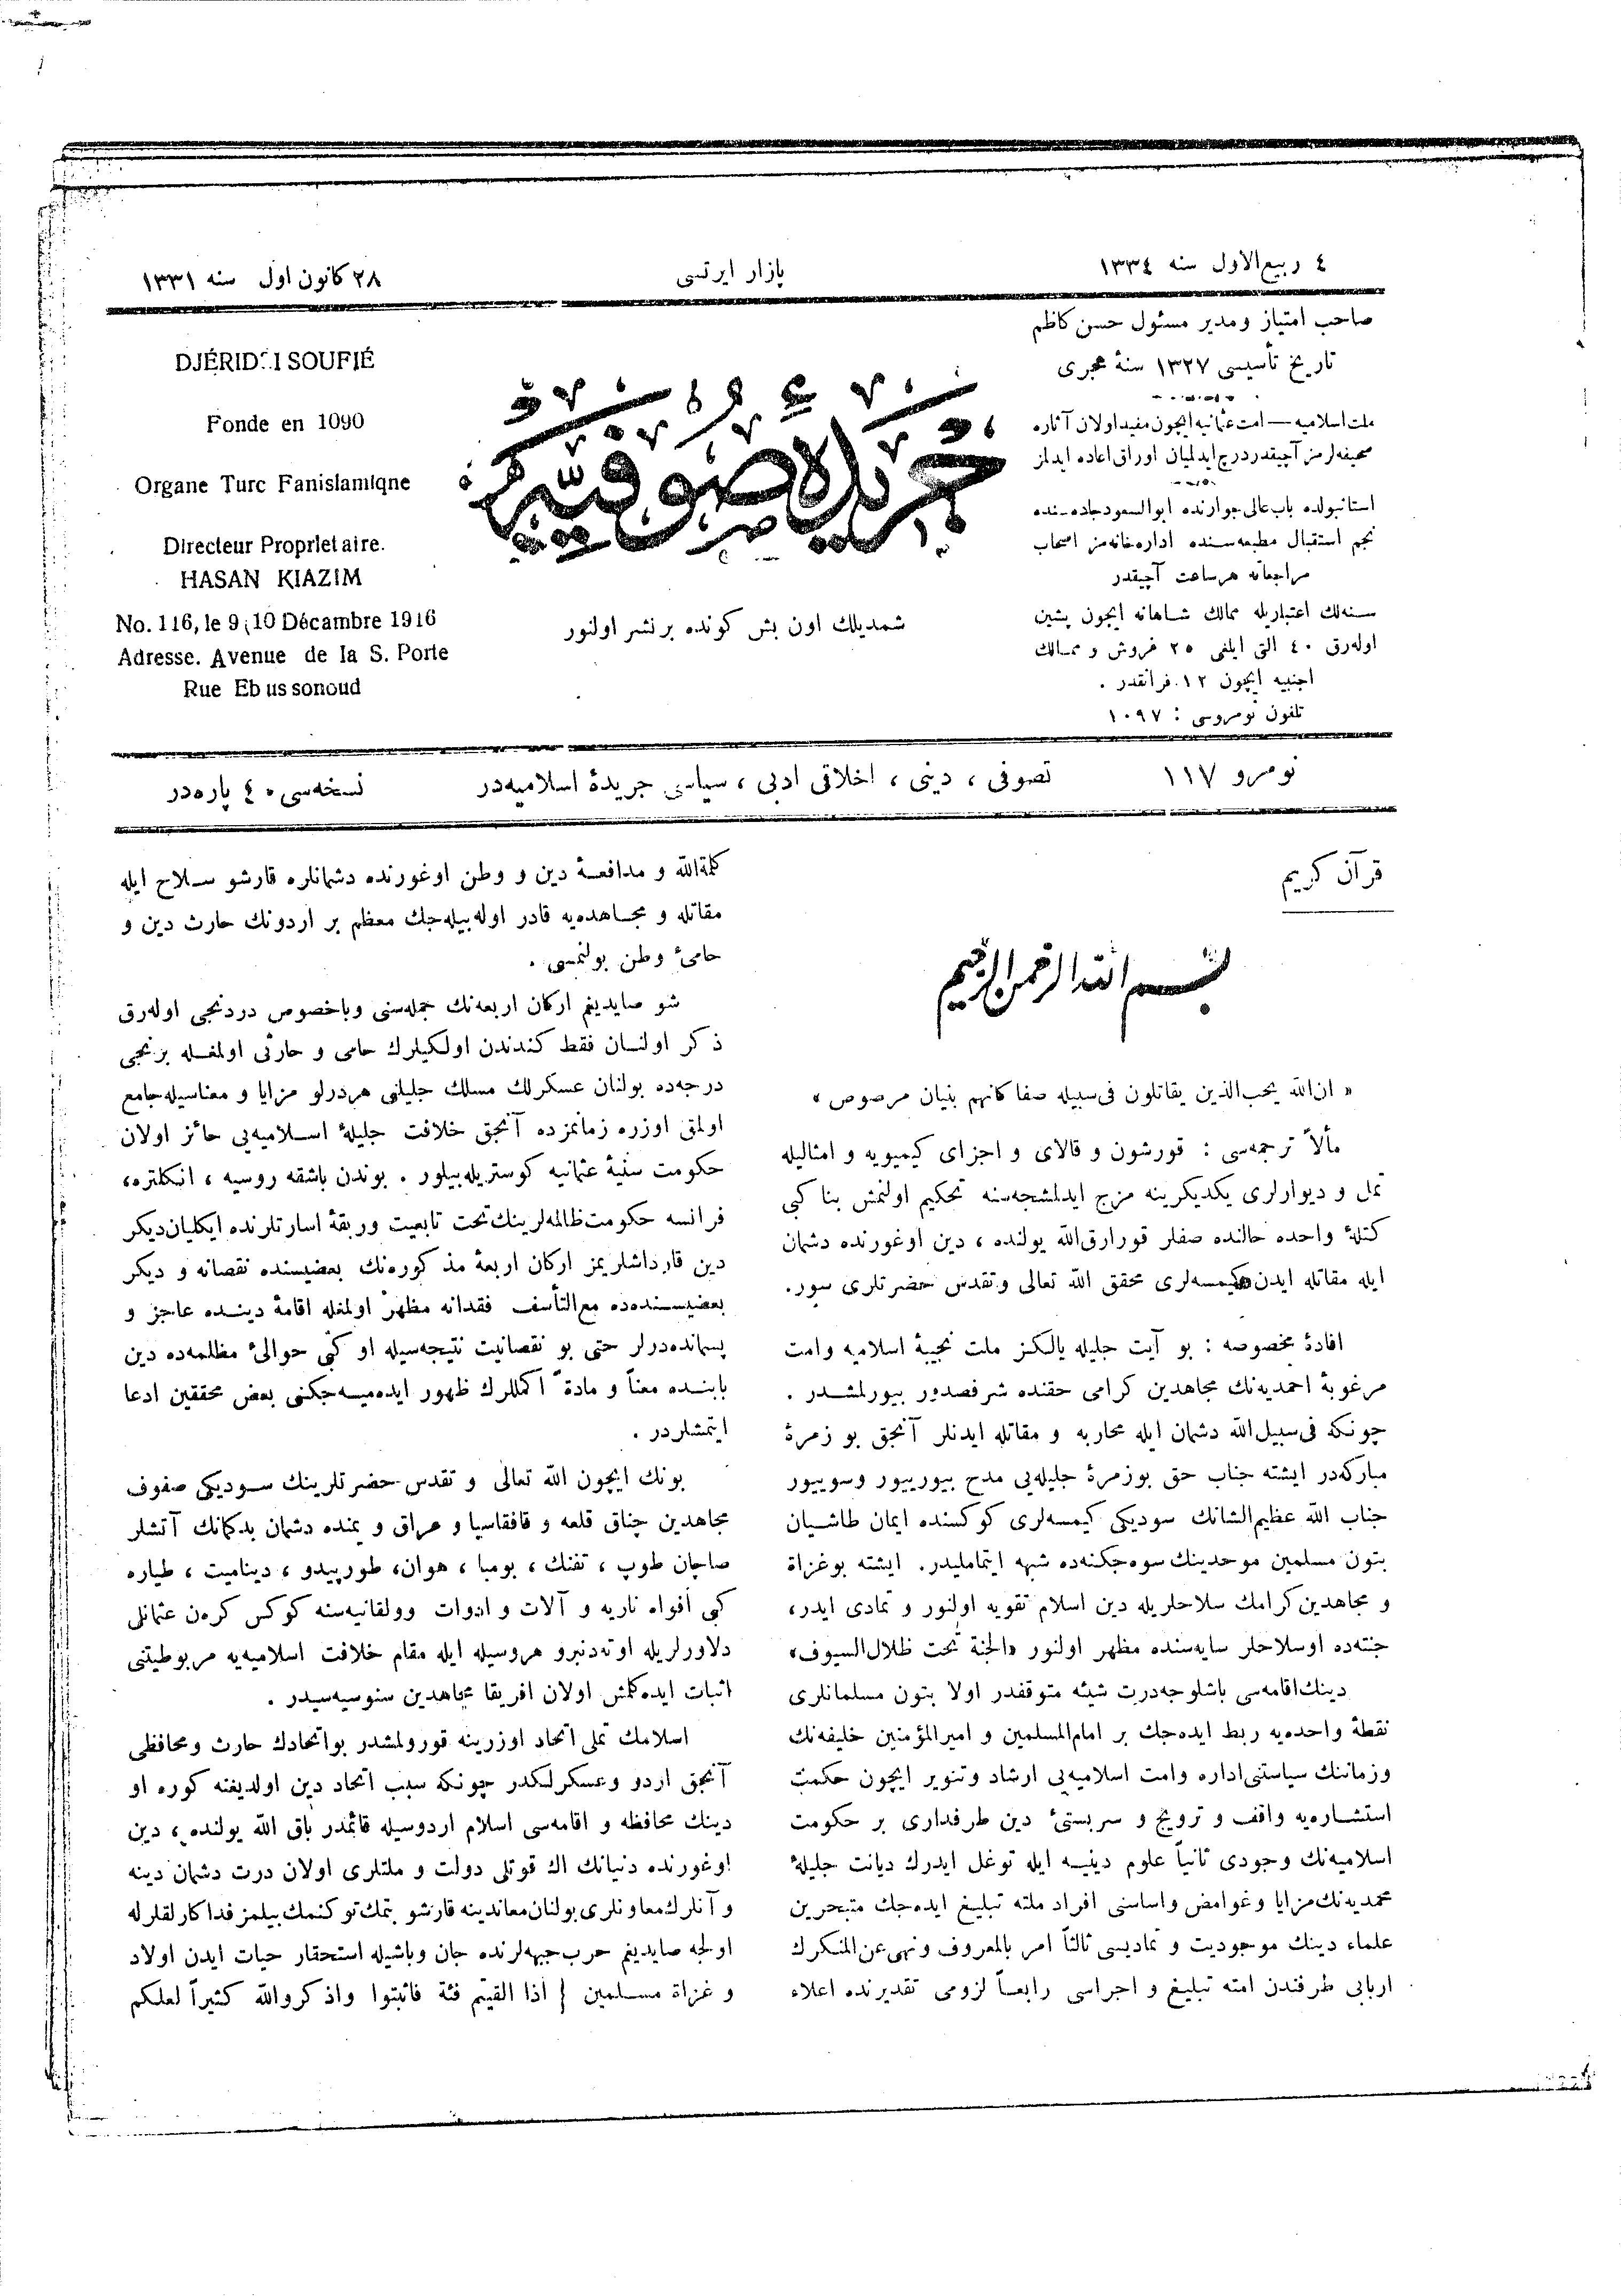 ٤ ربيع‌الاول سنه ١٣٣٤
پازار ايرتسی
٢٨ كانون اول سنه ١٣٣١
صاحب امتياز ومدير مسئول حسن كاظم
تاريخ تأسيسی ١٣٢٧ سنهٔ هجری
ملت اسلاميه — امت عثمانيه ايچون مفيد اولان آثاره
صحيفه‌لرمز آچيقدر درج ايدلميان اوراق اعاده ايدلمز
استانبولده باب عالی جوارنده ابوالسعود جاده‌سنده
نجم استقبال مطبعه‌سنده اداره‌خانه‌مز اصحاب
مراجعاته هرساعت آچيقدر
سنه‌لك اعتباريله ممالك شاهانه ايچون پشين
اوله‌رق ٤٠ التی ايلغی ٢٥ غروش و ممالك
اجنبيه ايچون ١٢ فرانقدر .
تلفون نومروسی : ١٠٩٧
جريدهٔ صوفيه
شمديلك اون بش كونده بر نشر اولنور
DJÉRIDÉI SOUFIÉ
Fonde en 1090
Organe Turc Fanislamiqne
Directeur Proprietaire.
HASAN KIAZIM
No. 116, le 9/10 Décambre 1916
Adresse. Avenue de la S. Porte
Rue Eb us sonoud
نومرو ١١٧
تصوفی ، دينی ، اخلاقی ادبی ، سياسی جريدهٔ اسلاميه‌در
نسخه‌سی ٤٠ پاره‌در
قرآن كريم
بسم الله الرحمن الرحيم
« ان‌الله يحب‌الذين يقاتلون فی‌سبيله صفا كانهم بنيان مرصوص »
مألاً ترجمه‌سی : قورشون و قالای و اجزای كيميويه و امثاليله
تمل و ديوارلری يكديكرينه مزج ايدلمشجه‌سنه تحكيم اولنمش بنا كبی
كتلهٔ واحده حالنده صفلر قورارق‌الله يولنده ، دين اوغورنده دشمان
ايله مقاتله ايدن كيمسه‌لری محقق الله تعالی وتقدس حضرتلری سور.
افادهٔ مخصوصه : بو آيت جليله يالكز ملت نجيبهٔ اسلاميه وامت
مرغوبهٔ احمديه‌نك مجاهدين كرامی حقنده شرفصدور بيورلمشدر .
چونكه فی‌سبيل‌الله دشمان ايله محاربه و مقاتله ايدنلر آنجق بو زمرهٔ
مباركه‌در ايشته جناب حق بوزمرهٔ جليله‌يی مدح بيورييور وسوييور
جناب الله عظيم‌الشانك سوديكی كيمسه‌لری كوكسنده ايمان طاشيان
بتون مسلمين موحدينك سوه‌جكنه‌ده شبهه ايتمامليدر. ايشته بوغزاة
و مجاهدين كرامك سلاحلريله دين اسلام تقويه اولنور و تمادی ايدر،
جنته‌ده اوسلاحلر سايه‌سنده مظهر اولنور «الجنة تحت ظلال‌السيوف»
دينك‌اقامه‌سی باشلوجه‌درت شيئه متوقفدر اولا بتون مسلمانلری
نقطهٔ واحده‌يه ربط ايده‌جك بر امام‌المسلمين و اميرالمؤمنين خليفه‌نك
وزماننك سياستنی‌اداره وامت اسلاميه‌يی ارشاد وتنوير ايچون حكمت
استشاره‌يه واقف و ترويج و سربستیٔ دين طرفداری بر حكومت
اسلاميه‌نك وجودی ثانياً علوم دينيه ايله توغل ايدرك ديانت جليلهٔ
محمديه‌نك مزايا وغوامض واساسنی افراد ملته تبليغ ايده‌جك متبحرين
علماء دينك موجوديت و تماديسی ثالثاً امر بالمعروف ونهی‌عن‌المنكرك
اربابی طرفندن امته تبليغ و اجراسی رابعاً لزومی تقديرنده اعلاء
كلمة‌الله و مدافعهٔ دين و وطن اوغورنده دشمانلره قارشو سلاح ايله
مقاتله و مجاهده‌يه قادر اوله‌بيله‌جك معظم بر اردونك حارث دين و
حامیٔ وطن بولنمسی .
شو صايديغم اركان اربعه‌نك جمله‌سنی وباخصوص دردنجی اوله‌رق
ذكر اولنسان فقط كندندن اولكيلرك حامی و حارثی اولمغله برنجی
درجه‌ده بولنان عسكرلك مسلك جليلنی هردرلو مزايا و معناسيله‌جامع
اولمق اوزره زمانمزده آنجق خلافت جليلهٔ اسلاميه‌يی حائز اولان
حكومت سنيهٔ عثمانيه كوستريله‌بيلور . بوندن باشقه روسيه ، انكلتره،
فرانسه حكومت‌ظالمه‌لرينك‌تحت تابعيت وربقهٔ اسارتلرنده ايكليان‌ديكر
دين قارداشلريمز اركان اربعهٔ مذكوره‌نك بعضيسنده نقصانه و ديكر
بعضيسنده‌ده مع‌التأسف فقدانه مظهر اولمغله اقامهٔ دينده عاجز و
پسمانده‌درلر حتی بو نقصانيت نتيجه‌سيله او كبی حوالیٔ مظلمه‌ده دين
بابنده معناً و مادةً اكمللرك ظهور ايده‌ميه‌جكنی بعض محققين ادعا
ايتمشلردر .
بونك ايچون الله تعالی و تقدس حضرتلرينك سوديكی صفوف
مجاهدين چناق قلعه و قافقاسيا و عراق و يمنده دشمان بدكمانك آتشلر
صاچان طوپ ، تفنك ، بومبا ، هوان، طورپيدو ، ديناميت ، طياره
كبی افواه ناريه و آلات و ادوات وولقانيه‌سنه كوكس كرەن عثمانلی
دلاورلريله اوته‌دنبرو هروسيله ايله مقام خلافت اسلاميه‌يه مربوطيتنی
اثبات ايده‌كلمش اولان افريقا مجاهدين سنوسيه‌سيدر .
اسلامك تملی اتحاد اوزرينه قورولمشدر بواتحادك حارث ومحافظی
آنجق اردو وعسكرلكدر چونكه سبب اتحاد دين اولديغنه كوره او
دينك محافظه و اقامه‌سی اسلام اردوسيله قائمدر باق الله يولنده ، دين
اوغورنده دنيانك اك قوتلی دولت و ملتلری اولان درت دشمان دينه
و آنلرك‌معاونلری بولنان‌معاندينه قارشو بتمك‌توكنمك‌بيلمز فداكارلقلرله
اولجه صايديغم حرب جبهه‌لرنده جان وباشيله استحقار حيات ايدن اولاد
و غزاة مسلمين { اذا القيتم فئة فاثبتوا واذكروالله كثيراً لعلكم